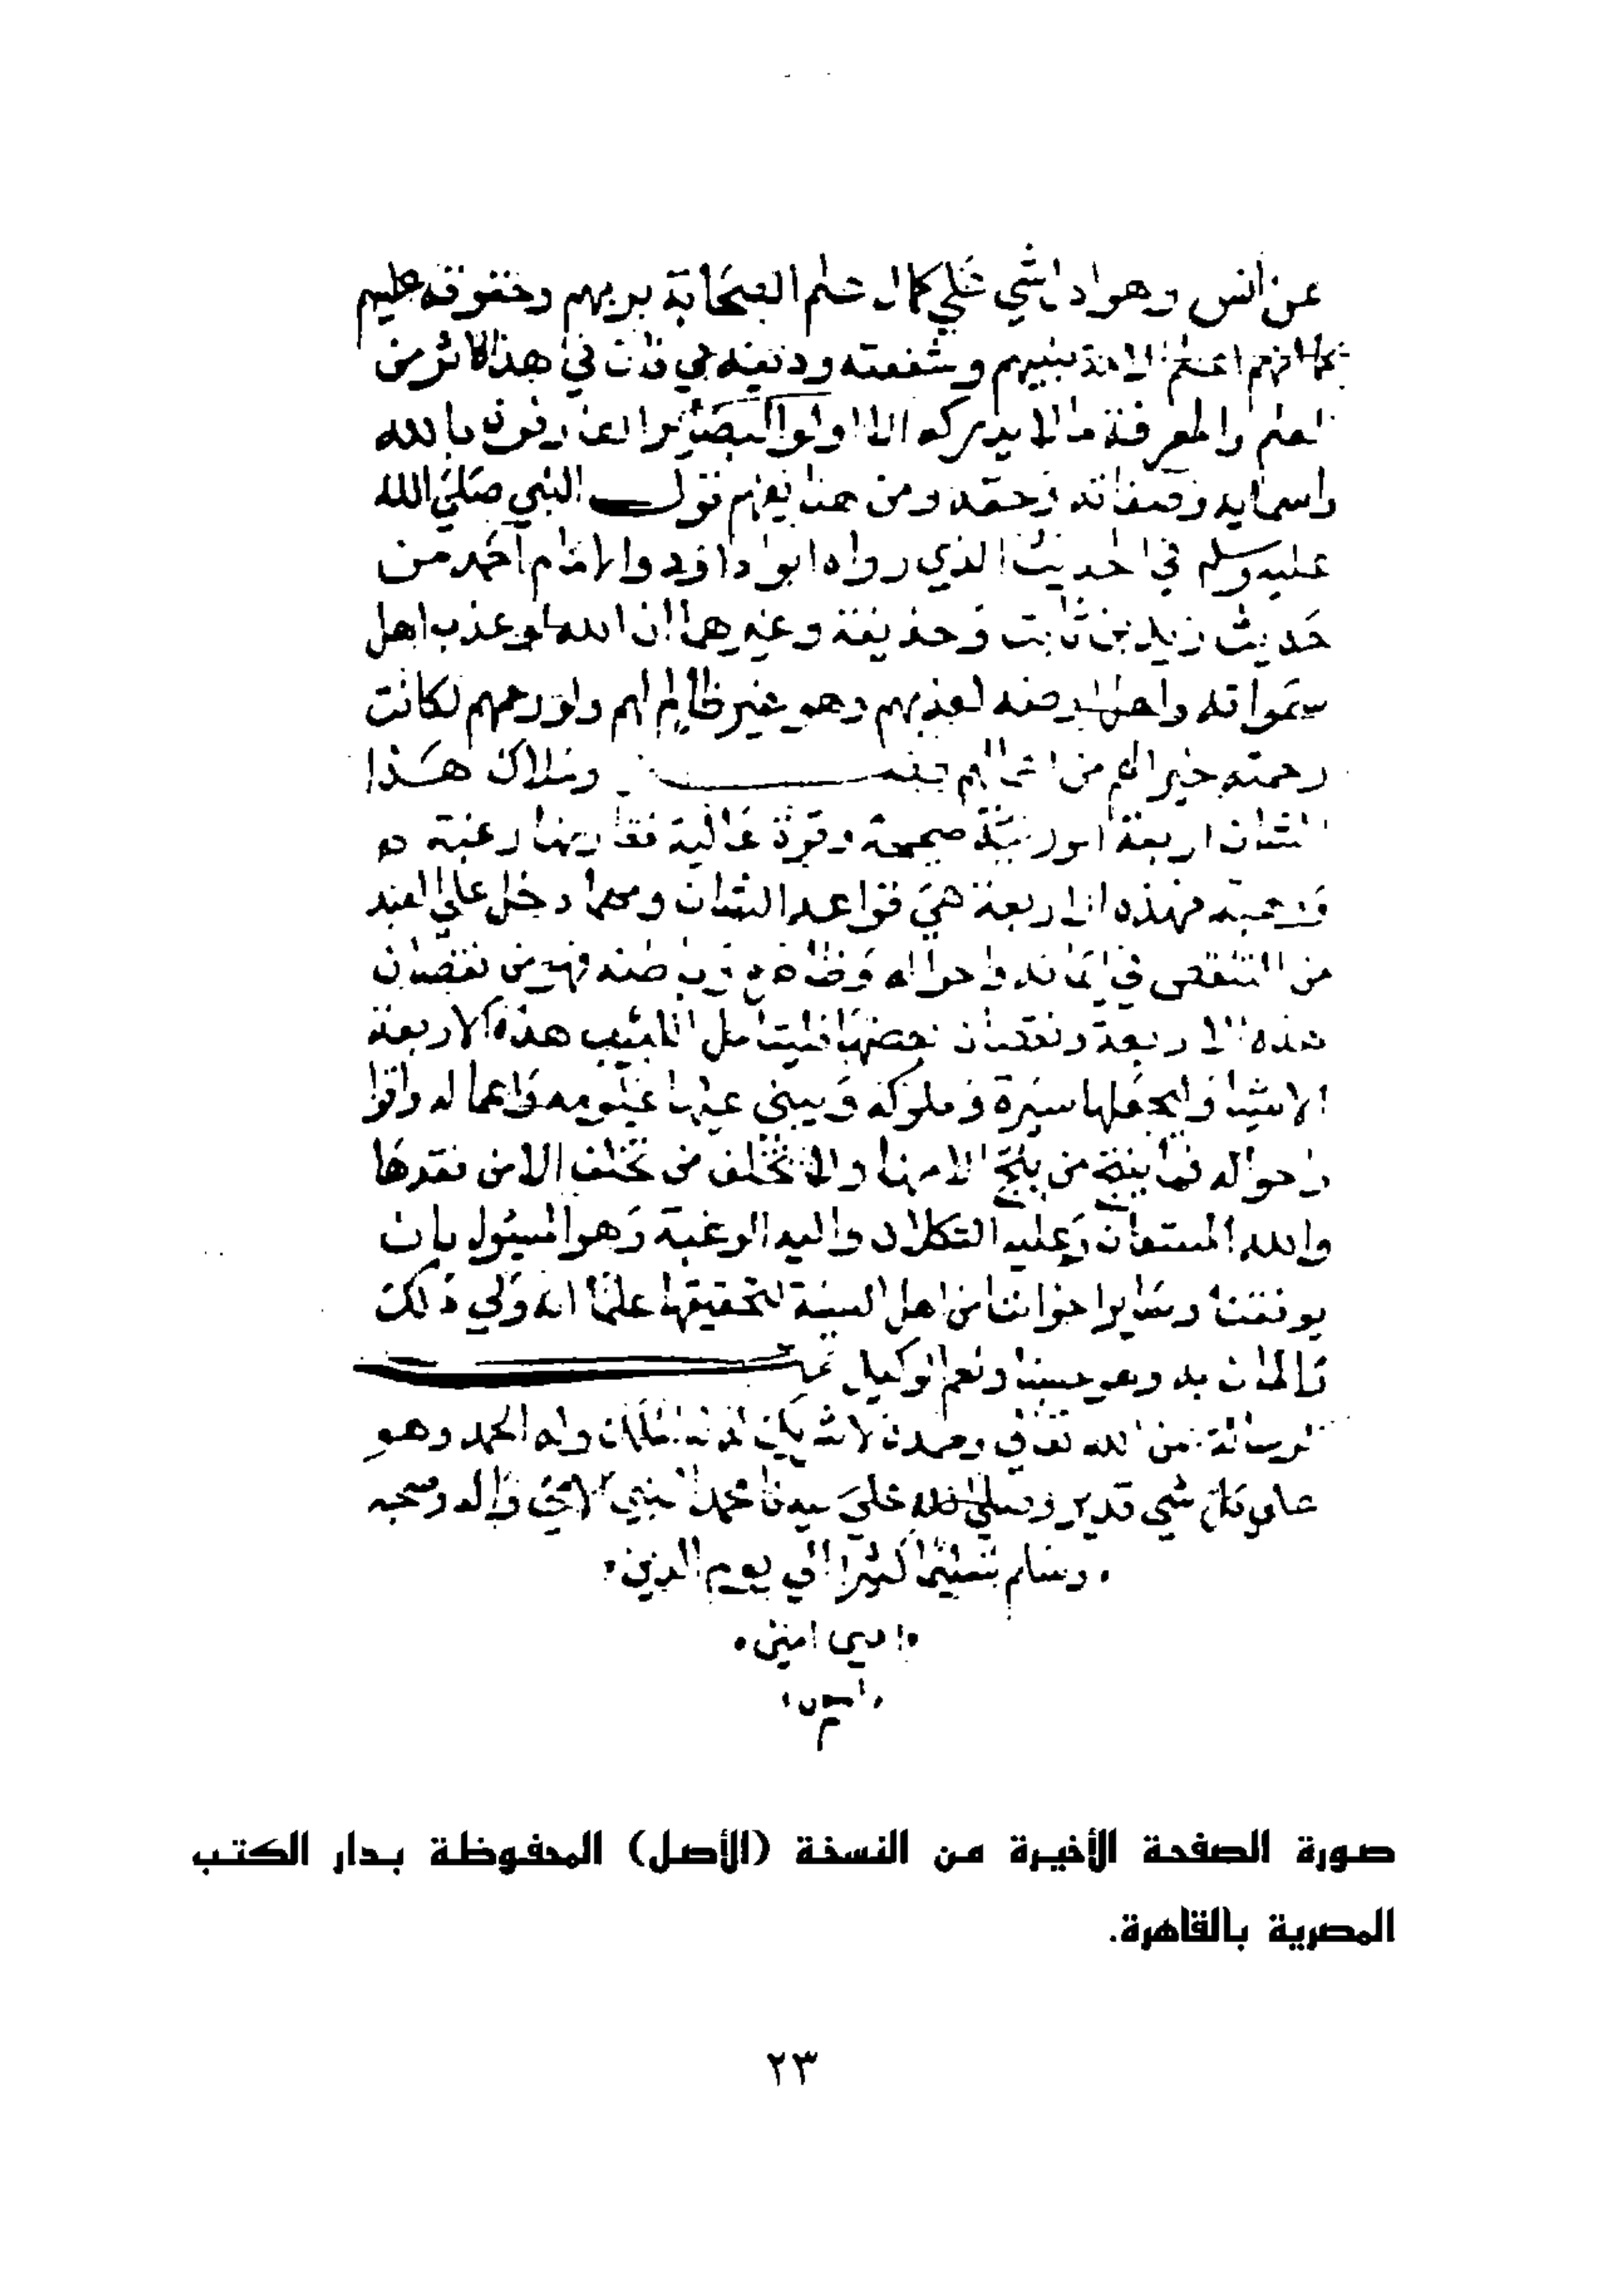 عن انس وهو ادل شي علي كمال علم الصحابة بربهم وحقوقه عليهم
كما انهم اعلم الامة بنبيهم وسنته ودينه فان في هذا الاثر من
العلم والمعرفة ما لا يدركه الا اولوا البصائر العارفون بالله
واسمايه وصفاته وحقه ومن هنا يفهم قول النبي صلي الله
عليه وسلم في الحديث الذي رواه ابو داود والامام احمد من
حديث زيد بن ثابت وحذيفة وغيرهما ان الله لو عذب اهل
سمواته واهل ارضه لعذبهم وهو غير ظالم لهم ولو رحمهم لكانت
رحمته خير الهم من اعمالهم وملاك هذا
الشان اربعة امور نية صحيحة وقوة عالية يقارنهما رغبة
ورهبة فهذه الاربعة هي قواعد الشان ومهما دخل علي العبد
من النقص في ايمانه واحواله وظاهره وباطنه فهو من نقصان
هذه الاربعة ونقصان بعضها فليتامل اللبيب هذه الاربعة
الاشيا وليجعلها سيره وسلوكه ويبني عليها علومه واعماله واقوا
واحواله فما نتج من نتج الا منها ولا تخلف من تخلف الا من فقدها
والله المستعان وعليه التكلان واليه الرغبة وهو المسئول بان
يوفقنا وساير اخواننا من اهل السنة لتحقيقها علما انه ولي ذلك
والمان به وهو حسبنا ونعم الوكيل تمت
الرسالة من الله تعالي وحده لا شريك له له الملك وله الحمد وهو
علي كل شي قدير وصلي الله علي سيدنا محمد النبي الامي واله وصحبه
وسلم تسليما كثيرا الي يوم الدين
امين
امين
صورة الصفحة الأخيرة من النسخة (الأصل) المحفوظة بدار الكتب
المصرية بالقاهرة.
٢٣